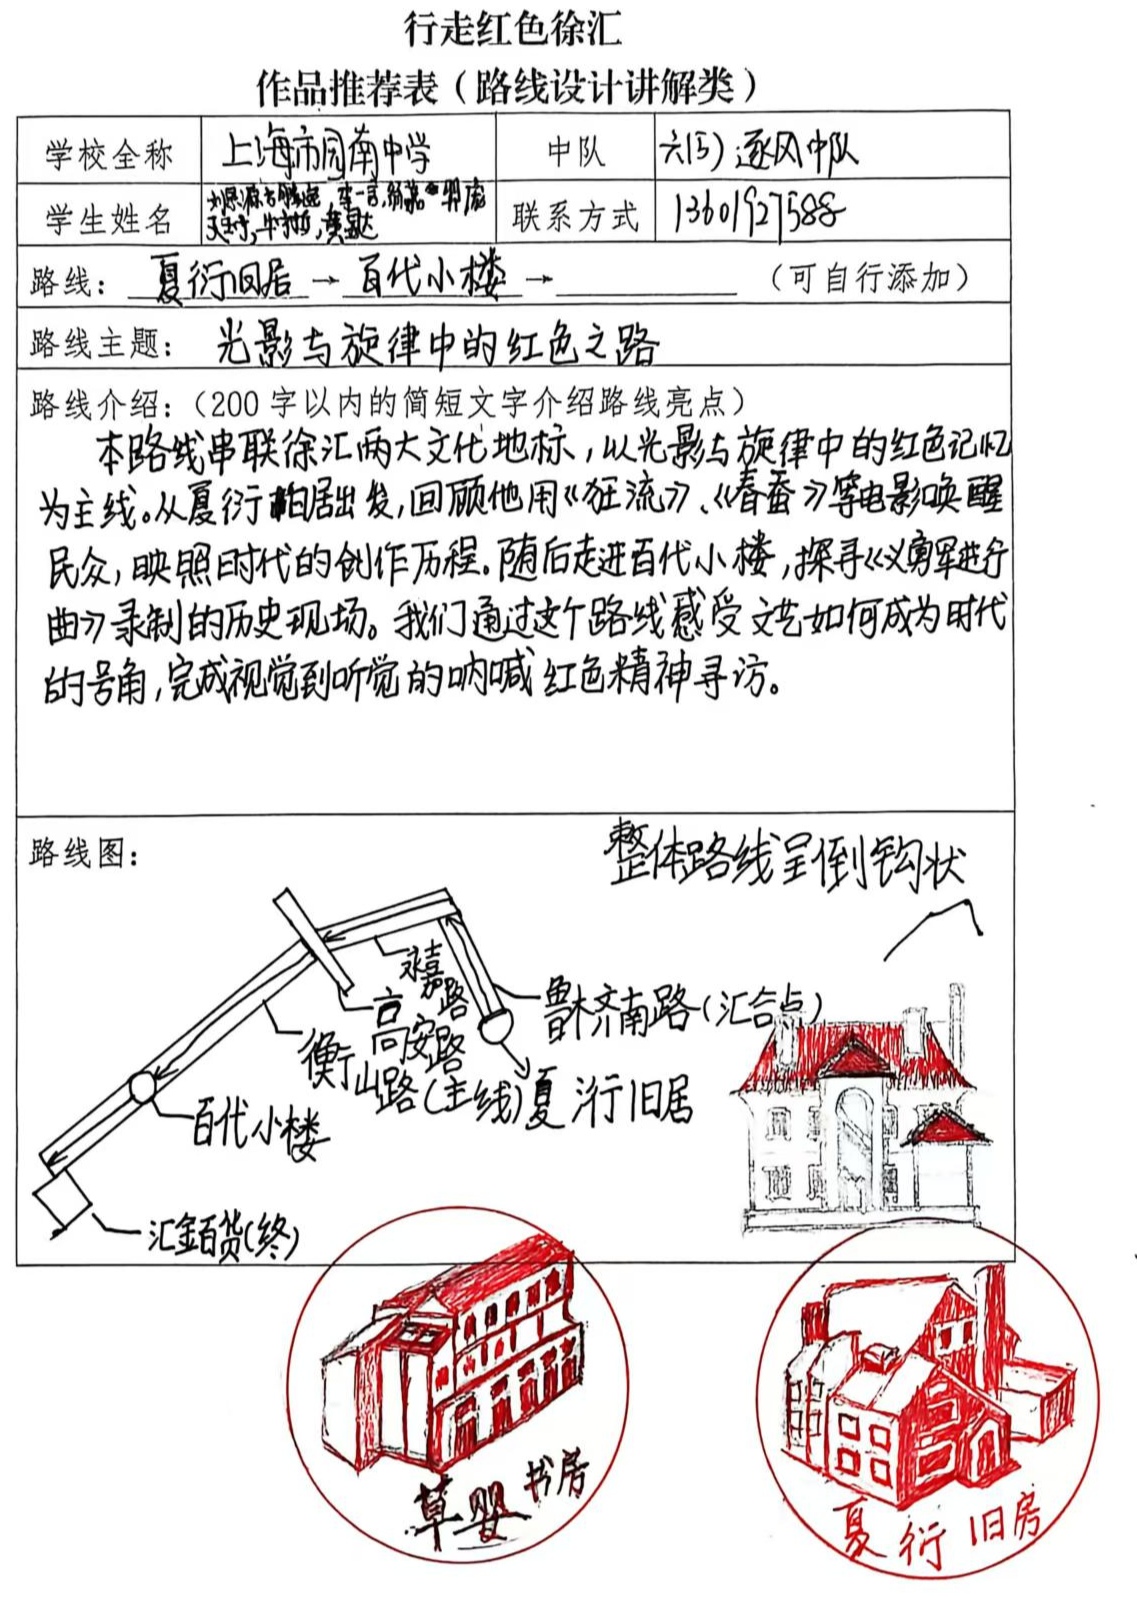 行走红色徐汇
作品推荐表（路线设计讲解类）
学校全称 上海市园南中学 中队 六(5) 逐风中队
学生姓名 联系方式 13601927588
路线： 夏衍旧居 → 百代小楼 → （可自行添加）
路线主题： 光影与旋律中的红色之路
路线介绍：（200 字以内的简短文字介绍路线亮点）
本路线串联徐汇两大文化地标，以光影与旋律中的红色记忆
为主线。从夏衍旧居出发，回顾他用《狂流》、《春蚕》等电影唤醒
民众，映照时代的创作历程。随后走进百代小楼，探寻《义勇军进行
曲》录制的历史现场。我们通过这个路线感受文艺如何成为时代
的号角，完成视觉到听觉的呐喊红色精神寻访。
路线图：
整体路线呈倒钩状
永嘉路
高安路
衡山路(主线)
乌鲁木齐南路(汇合点)
夏衍旧居
百代小楼
汇金百货(终)
草婴书房
夏衍旧房